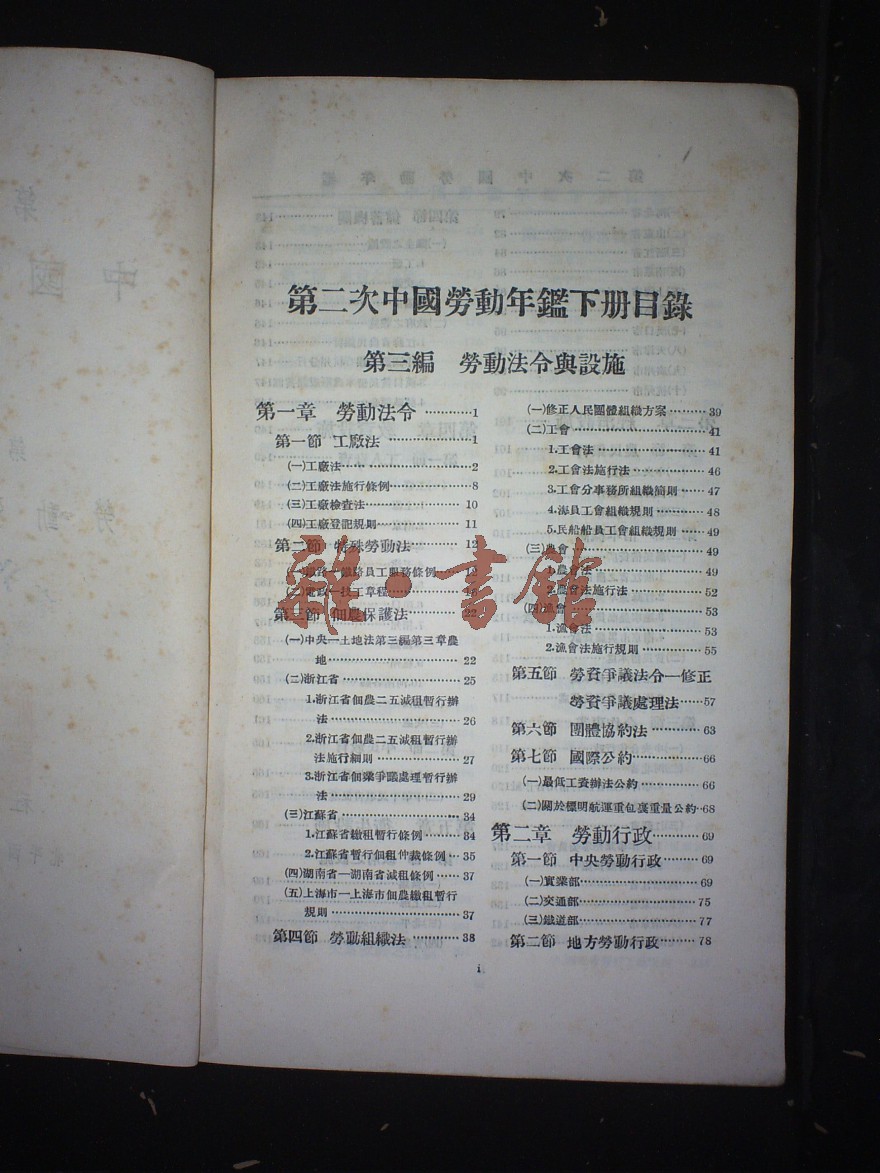 第二次中國勞動年鑑下册目錄
第三編 勞動法令與設施
第一章 勞動法令…………1
第一節 工厰法…………1
(一)工厰法…………2
(二)工厰法施行條例…………8
(三)工厰檢查法…………10
(四)工厰登記規則…………11
第二節 特殊勞動法…………12
員工服務條例
技工章程
第三節 佃農保護法…………22
(一)中央—土地法第三編第三章農
地…………22
(二)浙江省…………25
1.浙江省佃農二五減租暫行辦
法…………26
2.浙江省佃農二五減租暫行辦
法施行細則…………27
3.浙江省佃業爭議處理暫行辦
法…………29
(三)江蘇省…………34
1.江蘇省繳租暫行條例…………34
2.江蘇省暫行佃租仲裁條例…35
(四)湖南省—湖南省減租條例…37
(五)上海市—上海市佃農繳租暫行
規則…………37
第四節 勞動組織法…………38
(一)修正人民團體組織方案………39
(二)工會…………41
1.工會法…………41
2.工會法施行法…………46
3.工會分事務所組織簡則…47
4.海員工會組織規則…………48
5.民船船員工會組織規則…49
(三)農會…………49
1.農會法…………49
2.農會法施行法…………52
(四)漁會…………53
1.漁會法…………53
2.漁會法施行規則…………55
第五節 勞資爭議法令—修正
勞資爭議處理法……57
第六節 團體協約法…………63
第七節 國際公約…………66
(一)最低工資辦法公約…………66
(二)關於標明航運重包裹重量公約…68
第二章 勞動行政…………69
第一節 中央勞動行政………69
(一)實業部…………69
(二)交通部…………75
(三)鐵道部…………77
第二節 地方勞動行政………78
i
雜·書館